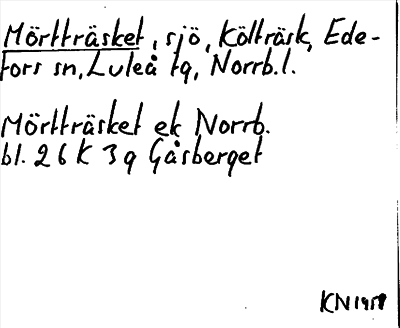 Mörtträsket, sjö, Költräsk, Ede-
fors sn, Luleå tg, Norrb.l.
Mörtträsket ek Norrb.
bl. 26 K 3 g Gåsberget